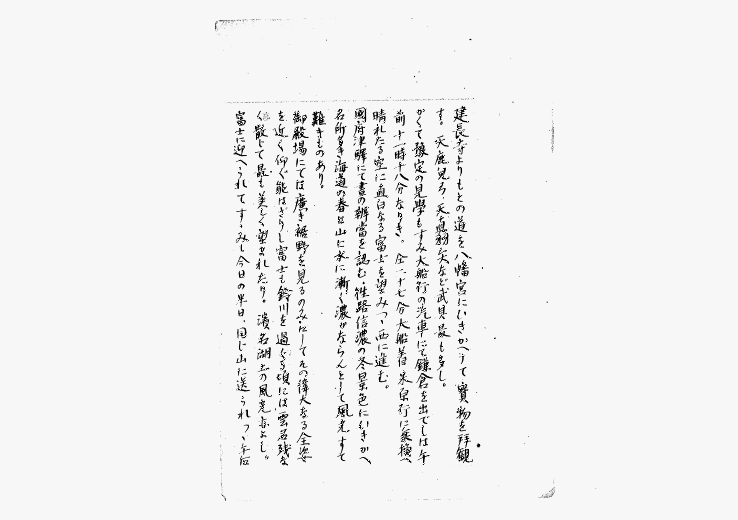 建長寺よりもとの道を八幡宮にいきかへりて寶物を拝観
す。天鹿兒弓、天真鹿矢など武具最も多し。
かくて豫定の見學もすみ大船行の汽車にて鎌倉を出でしは午
前十一時十八分なりき。全二十七分大船着東京行に乗換へ
晴れたる空に真白なる富士を望みつゝ西に進む。
國府津驛にて晝の辨當を認む。往路信濃の冬景色にひきかへ
名所多き海道の春は山に水に漸く濃かならんとして風光すて
難きものあり。
御殿場にては廣き裾野を見るのみにしてその偉大なる全姿
を近く仰ぐ能はざりし富士も鈴川を過ぐる頃には雲名残な
く散じて最も美しく望まれたり。濱名湖上の風光亦よし。
富士に迎へられてすゝみし今日の半日、同じ山に送られつゝ午后